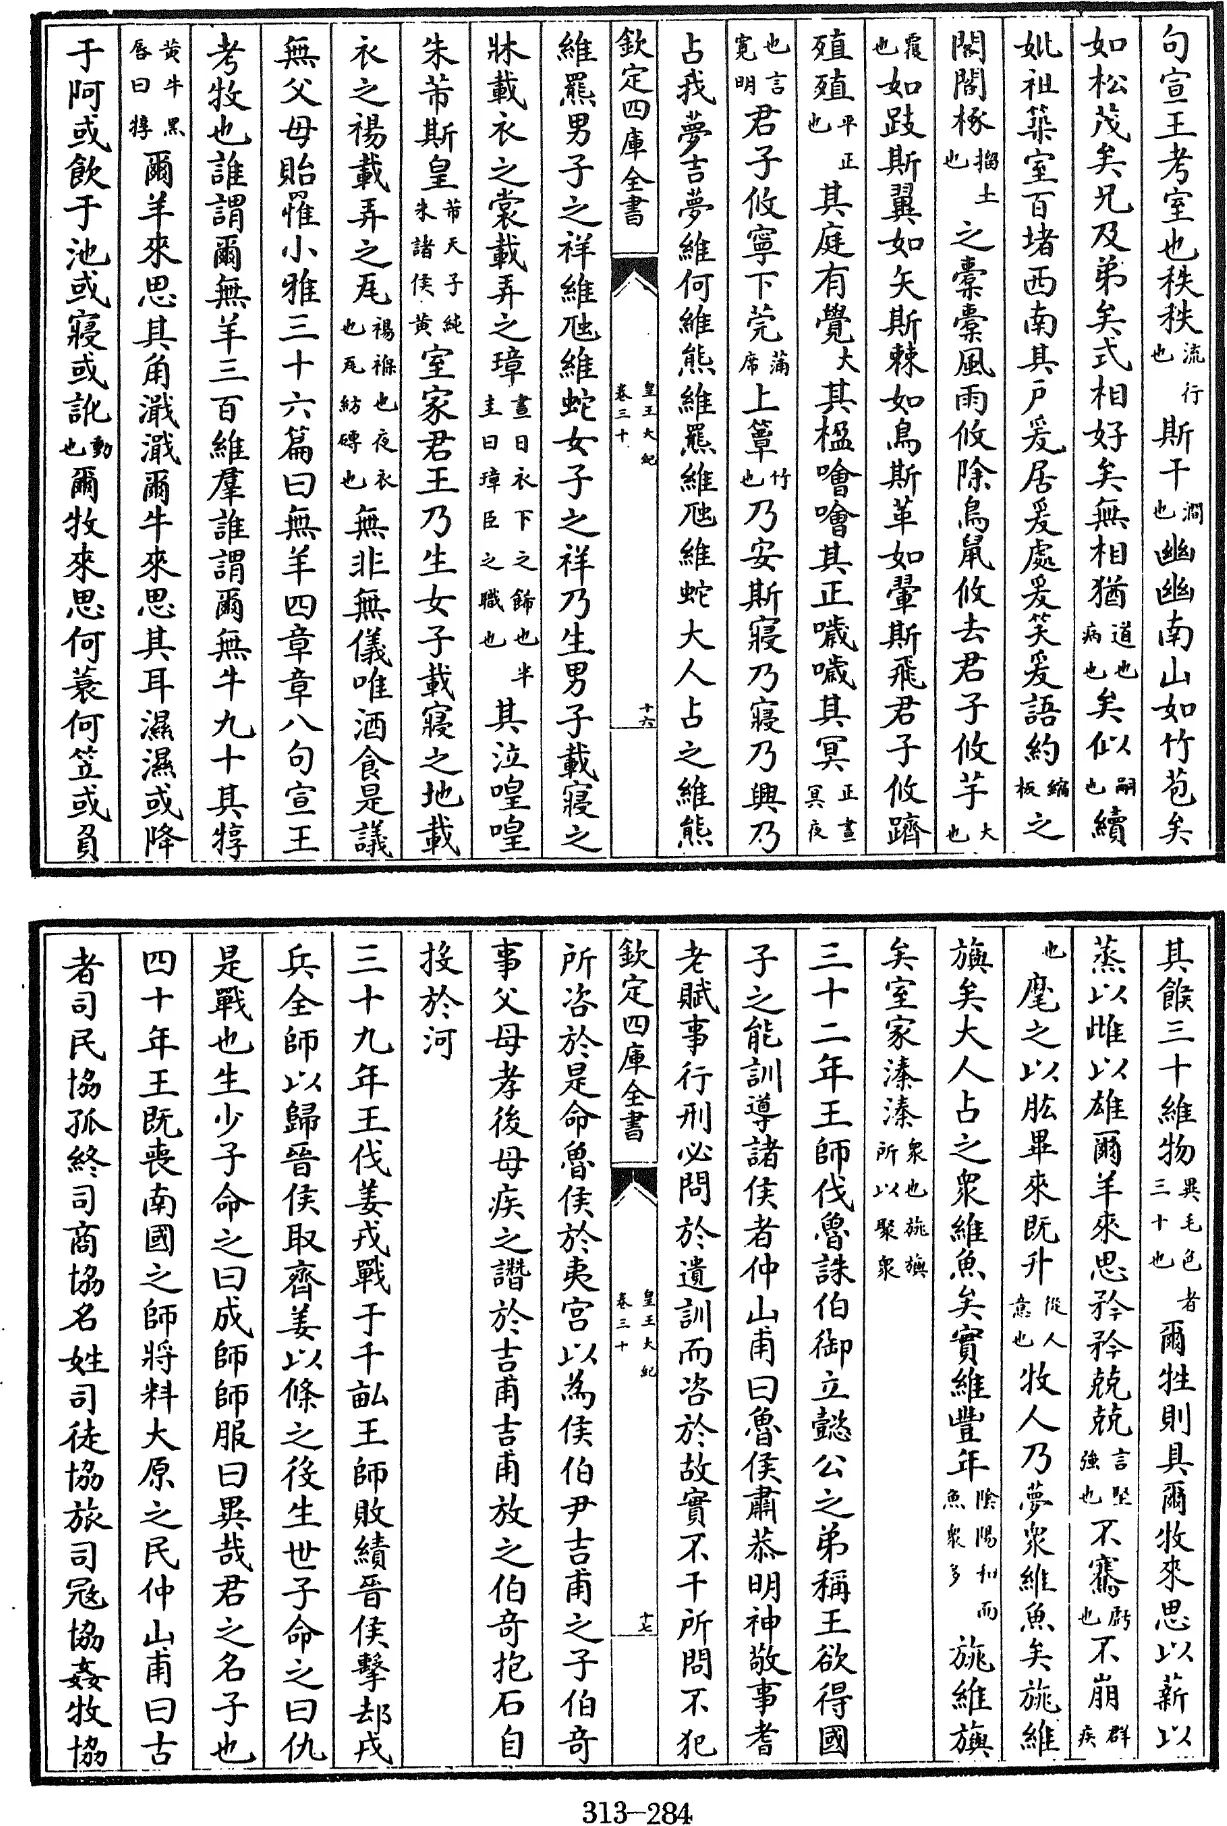 句宣王考室也秩秩流行也斯干澗也幽幽南山如竹苞矣
如松茂矣兄及弟矣式相好矣無相猶道也病也矣似嗣也續
妣祖築室百堵西南其戶爰居爰處爰笑爰語約縮板之
閣閣椓搊土也之橐橐風雨攸除鳥鼠攸去君子攸芋大也
如跂斯翼如矢斯棘如鳥斯革如翬斯飛君子攸躋
殖殖平正也其庭有覺大其楹噲噲其正噦噦其冥正晝冥夜
也言寛明君子攸寧下莞蒲席上簟竹也乃安斯寢乃寢乃興乃
占我夢吉夢維何維熊維羆維虺維蛇大人占之維熊
欽定四庫全書 皇王大紀卷三十 十六
維羆男子之祥維虺維蛇女子之祥乃生男子載寢之
牀載衣之裳載弄之璋晝日衣下之飾也半圭曰璋臣之職也其泣喤喤
朱芾斯皇芾天子純朱諸侯黄室家君王乃生女子載寢之地載
衣之裼載弄之瓦裼褓也夜衣也瓦紡磚也無非無儀唯酒食是議
無父母貽罹小雅三十六篇曰無羊四章章八句宣王
考牧也誰謂爾無羊三百維羣誰謂爾無牛九十其犉
黄牛黒唇曰犉爾羊來思其角濈濈爾牛來思其耳濕濕或降
于阿或飲于池或寢或訛動也爾牧來思何蓑何笠或負
其餱三十維物異毛色者三十也爾牲則具爾牧來思以薪以
蒸以雌以雄爾羊來思矜矜兢兢言堅強也不騫虧也不崩群疾
也麾之以肱畢來既升從人意也牧人乃夢衆維魚矣旐維
旟矣大人占之衆維魚矣實維豐年隂陽和而魚衆多旐維旟
矣室家溱溱衆也旐旟所以聚衆
三十二年王師伐魯誅伯御立懿公之弟稱王欲得國
子之能訓導諸侯者仲山甫曰魯侯肅恭明神敬事耆
老賦事行刑必問於遺訓而咨於故實不干所問不犯
欽定四庫全書 皇王大紀卷三十 十七
所咨於是命魯侯於夷宫以為侯伯尹吉甫之子伯奇
事父母孝後母疾之譖於吉甫吉甫放之伯奇抱石自
投於河
三十九年王伐姜戎戰于千畝王師敗績晉侯擊却戎
兵全師以歸晉侯取齊姜以條之役生世子命之曰仇
是戰也生少子命之曰成師師服曰異哉君之名子也
四十年王既喪南國之師將料大原之民仲山甫曰古
者司民協孤終司商協名姓司徒協旅司冦協姦牧協
313-284